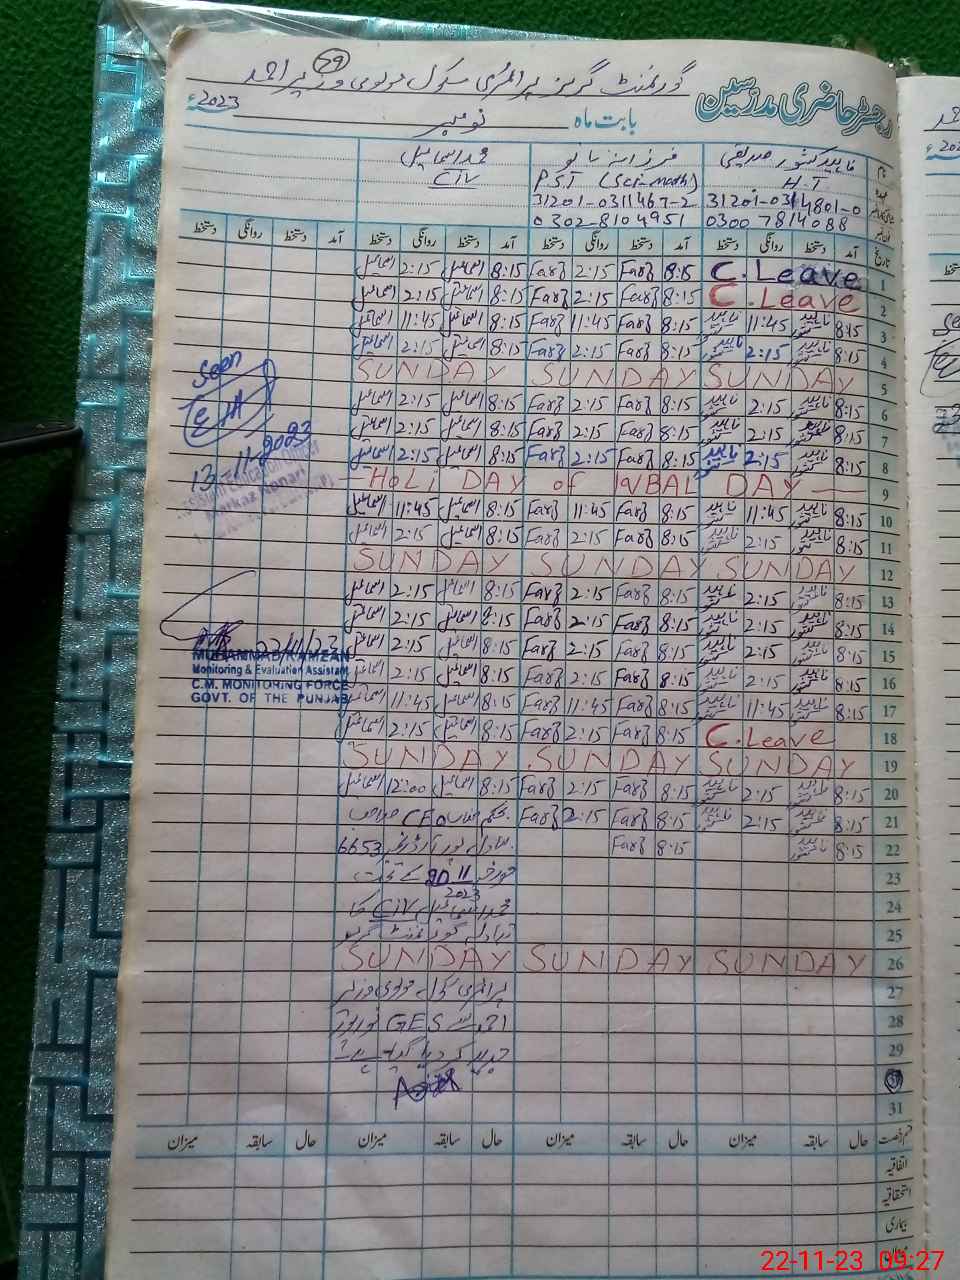 79
گورنمنٹ گرلز پرائمری سکول مولوی وزیر احمد
رجسٹر حاضری مدرسین
بابت ماہ نومبر 2023ء
ناہید کشور صدیقی فرزانہ بانو محمد اسماعیل
H.T PST (Sci-math) CIV
31201-0314801-0 31201-0311467-2
0300 7814088 0302-8104951
تاریخ آمد دستخط روانگی دستخط آمد دستخط روانگی دستخط آمد دستخط روانگی دستخط آمد دستخط روانگی دستخط
1 C.Leave 8:15 Farz 2:15 Farz 8:15 اسماعیل 2:15 اسماعیل
2 C.Leave 8:15 Farz 2:15 Farz 8:15 اسماعیل 2:15 اسماعیل
3 8:15 ناہید کشور 11:45 ناہید کشور 8:15 Farz 11:45 Farz 8:15 اسماعیل 11:45 اسماعیل
4 8:15 ناہید کشور 2:15 ناہید کشور 8:15 Farz 2:15 Farz 8:15 اسماعیل 2:15 اسماعیل
5 SUNDAY SUNDAY SUNDAY
6 8:15 ناہید کشور 2:15 ناہید کشور 8:15 Farz 2:15 Farz 8:15 اسماعیل 2:15 اسماعیل
7 8:15 ناہید کشور 2:15 ناہید کشور 8:15 Farz 2:15 Farz 8:15 اسماعیل 2:15 اسماعیل
8 8:15 ناہید کشور 2:15 ناہید کشور 8:15 Farz 2:15 Farz 8:15 اسماعیل 2:15 اسماعیل
9 HOLiDAY of IQBAL DAY
10 8:15 ناہید کشور 11:45 ناہید کشور 8:15 Farz 11:45 Farz 8:15 اسماعیل 11:45 اسماعیل
11 8:15 ناہید کشور 2:15 ناہید کشور 8:15 Farz 2:15 Farz 8:15 اسماعیل 2:15 اسماعیل
12 SUNDAY SUNDAY SUNDAY
13 8:15 ناہید کشور 2:15 ناہید کشور 8:15 Farz 2:15 Farz 8:15 اسماعیل 2:15 اسماعیل
14 8:15 ناہید کشور 2:15 ناہید کشور 8:15 Farz 2:15 Farz 8:15 اسماعیل 2:15 اسماعیل
15 8:15 ناہید کشور 2:15 ناہید کشور 8:15 Farz 2:15 Farz 8:15 اسماعیل 2:15 اسماعیل
16 8:15 ناہید کشور 2:15 ناہید کشور 8:15 Farz 2:15 Farz 8:15 اسماعیل 2:15 اسماعیل
17 8:15 ناہید کشور 11:45 ناہید کشور 8:15 Farz 11:45 Farz 8:15 اسماعیل 11:45 اسماعیل
18 C.Leave 8:15 Farz 2:15 Farz 8:15 اسماعیل 2:15 اسماعیل
19 SUNDAY SUNDAY SUNDAY
20 8:15 ناہید کشور 2:15 ناہید کشور 8:15 Farz 2:15 Farz 8:15 اسماعیل 12:00 اسماعیل
21 8:15 ناہید کشور 2:15 ناہید کشور 8:15 Farz 2:15 Farz بحکم جناب CEO صاحب
22 8:15 ناہید کشور 8:15 Farz بہاولپور آرڈر نمبر 6653
23 مورخہ 20 11 2023 کے تحت
24 محمد اسماعیل CIV کا
25 تبادلہ گورنمنٹ گرلز
26 SUNDAY SUNDAY SUNDAY
27 پرائمری سکول مولوی وزیر
28 احمد سے GES
29 کر دیا گیا ہے
31
قسم رخصت حال سابقہ میزان حال سابقہ میزان حال سابقہ میزان حال سابقہ میزان
اتفاقیہ
استحقاقیہ
بیماری
Seen
13-11-2023
22/11/23
MUHAMMAD RAMZAN
Monitoring & Evaluation Assistant
C.M. MONITORING FORCE
GOVT. OF THE PUNJAB
22-11-23 09:27